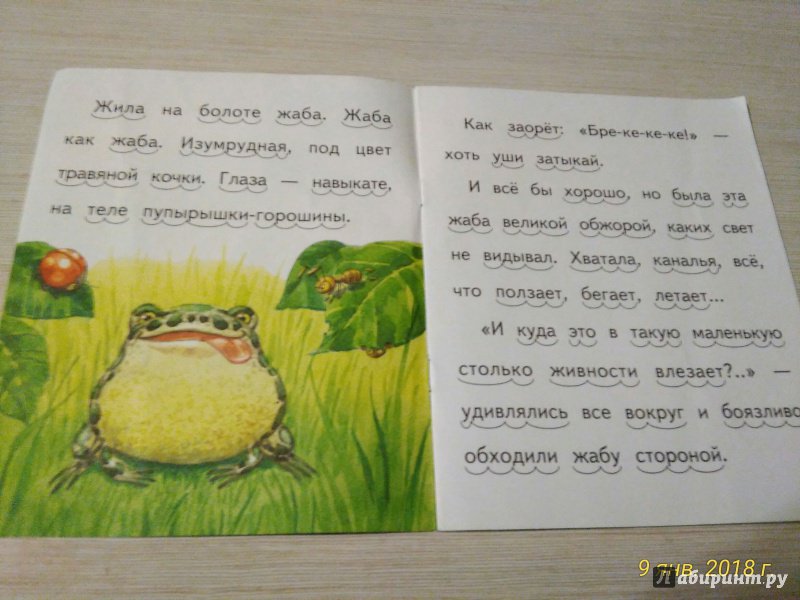 Жила на болоте жаба. Жаба
как жаба. Изумрудная, под цвет
травяной кочки. Глаза — навыкате,
на теле пупырышки-горошины.
Как заорёт: «Бре-ке-ке-ке!» —
хоть уши затыкай.
И всё бы хорошо, но была эта
жаба великой обжорой, каких свет
не видывал. Хватала, каналья, всё,
что ползает, бегает, летает...
«И куда это в такую маленькую
столько живности влезает?..» —
удивлялись все вокруг и боязливо
обходили жабу стороной.
9 янв. 2018 г.
Лабиринт.ру